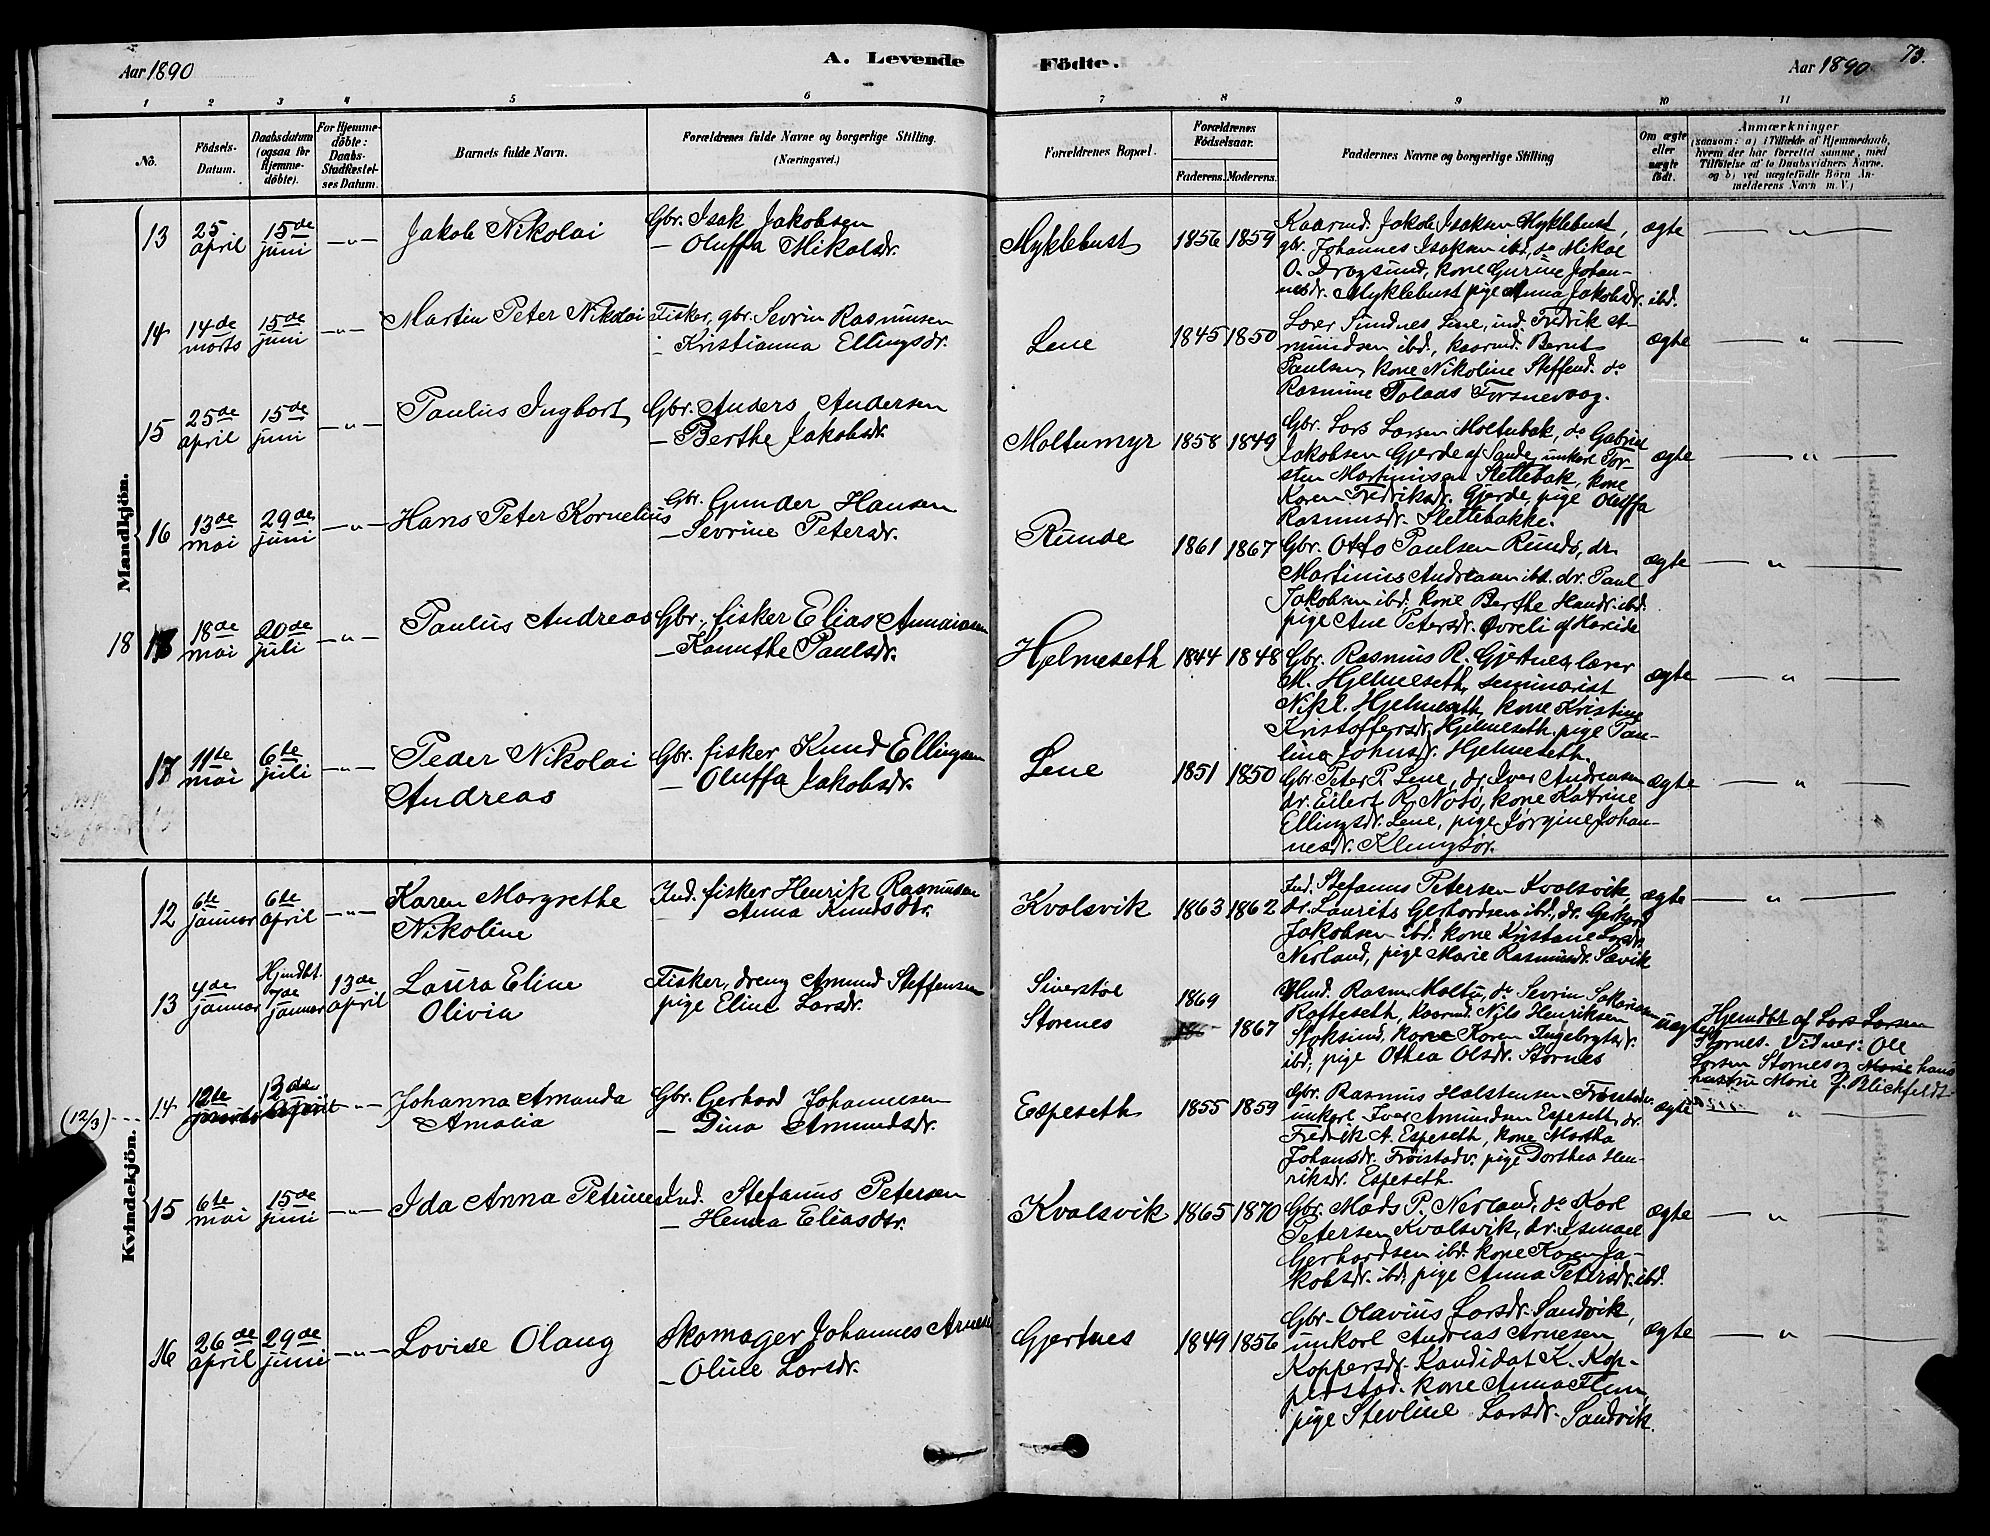 Aar 1890
A. Levende
Födte.
Aar 1890
73.
1 2 3 4 5 6 7 8 9 10 11
No.
Födsels-
Datum.
Daabsdatum
(ogsaa for
Hjemme-
döbte).
For Hjemme-
döbte:
Daabs-
Stadfæstel-
ses Datum.
Barnets fulde Navn.
Forældrenes fulde Navne og borgerlige Stilling.
(Næringsvei.)
Forældrenes Bopæl.
Forældrenes
Födselsaar.
Faderens. Moderens.
Faddernes Navne og borgerlige Stilling
Om ægte
eller
uægte
födt.
Anmærkninger
(saasom: a) i Tilfælde af Hjemmedaab,
hvem der har forrettet samme, med
Tilföielse af to Daabsvidners Navne.
og b) ved uægtefödte Börn An-
melderens Navn m. V.)
Mandkjön.
13
25
april
15de
juni
-"-
Jakob Nikolai
Gbr. Isak Jakobsen
- Oluffa Mikalsdr.
Myklebust
1856 1859
Kaarmd. Jakob Isaksen Myklebust,
gbr. Johannes Isaksen ibd, do Mikal
O. Dragsund, kone Gurine Johan-
nesdr. Myklebust pige Anna Jakobsdr. ibd.
ægte
"
14
14de
marts
15de
juni
-"-
Martin Peter Nikolai
Fisker, gbr. Sevrin Rasmusen
- Kristianna Ellingsdr.
Lene
1845 1850
Lærer Sundnes Lene, ind. Fredrik A-
mundsen ibd., kaarmd. Bernt
Paulsen, kone Nikoline Steffensd. do
Rasmine Tolads Fosnevaag.
ægte
"
15
25de
april
15de
juni
-"-
Paulus Ingbort
Gbr. Anders Andersen
- Berthe Jakobsdr.
Moltumyr
1858 1849
Gbr. Lars Larsen Moltubak, do Gabriel
Jakobsen Gjerde af Sande, unkarl Tor-
sten Martinusen Slettebak, kone
Karen Fredriksdr. Gjerde, pige Oluffa
Rasmusdr. Slettebakke.
ægte
"
16
13de
mai
29de
juni
-"-
Hans Peter Kornelius
Gbr. Gunder Hansen
- Sevrine Petersdr.
Runde
1861 1867
Gbr. Otto Paulsen Runde, dr.
Martinus Andreasen ibd. dr. Paul
Jakobsen ibd. kone Berthe Hansdr. ibd.
pige Ane Petersdr. Øvreli af Hareide
ægte
"
18
18de
mai
20de
juli
-"-
Paulus Andreas
Gbr., fisker Elias Annaniasen
- Kanuthe Paulsdr.
Hjelmeseth
1844 1848
Gbr. Rasmus R. Gjertnes, lærer
M. Hjelmeseth, seminarist
Nikl. Hjelmeseth, kone Kristine
Kristoffersdr. Hjelmeseth. pige Pau-
line Johnsdr. Hjelmeseth.
ægte
"
17
11te
mai
6te
juli
-"-
Peder Nikolai
Andreas
Gbr. fisker Knud Ellingsen
- Oluffa Jakobsdr.
Lene
1851 1850
Gbr. Peter P. Lene, dr. Iver Andreasen
dr. Eilert R. Nøtø, kone Katrine
Ellingsdr. Lene, pige Jørgine Johan-
nesdr. Klungsør.
ægte
"
Kvindekjön.
12
6te
januar
6te
april
-"-
Karen Margrethe
Nikoline
Ind. fisker Henrik Rasmusen
- Anna Knudsdtr.
Kvalsvik
1863 1862
Ind. Stefanus Petersen Kvalsvik,
dr. Laurits Gerhardsen ibd., dr. Gerhard
Jakobsen ibd. kone Kristane Larsdr.
Nerland, pige Marie Rasmusdr. Sævik
ægte
"
13
4de
januar
Hjemdbt.
7de
januar
13de
april
Laura Eline
Olivia
Fisker, dreng Amund Steffensen
pige Eline Larsdr.
Siverstøl
Stornes
1869
1867
Rasm. Moltu, do Sevrin Sakariasen
Rafteseth, kaarmd. Nils Henriksen
Stoksund, kone Karen Ingebrigtsdr.
ibd., pige Othea Olsdr. Stornes
uægte
Hjemdbt af Lars Larsen
Stornes. Vidner: Ole
Larsen Stornes og Marie hans
hustru Marie f. Blichfeldt.
(12/3)
14
12te
marts
13de
April
-"-
Johanna Amanda
Amalia
Gbr. Gerhard Johannesen
- Dina Amundsdr.
Espeseth
1855 1859
Gbr. Rasmus Halstensen Frøistadv.
unkarl Iver Amundsen Espeseth, dr.
Fredrik A. Espeseth, kone Martha
Johansdr. Frøistadv. pige Dorthea Hen-
riksdr. Espeseth.
ægte
"
15
6te
mai
15de
juni
-"-
Ida Anna Petrine
Ind. Stefanus Petersen
- Henna Eliasdtr.
Kvalsvik
1865 1870
Gbr. Mads P. Nerland, do Karl
Petersen Kvalsvik, dr. Ismael
Gerhardsen ibd. kone Karen Ja-
kobsdr. ibd, pige Anna Petersdr. ibd.
ægte
"
16
26de
april
29de
juni
-"-
Lovise Olaug
Skomager Johannes Arnesen
- Oline Larsdr.
Gjertnes
1849 1856
Gbr. Olavius Larsdr. Sandvik,
unkarl Andreas Arnesen
Koppersdr. Kandidat K. Kop-
perstad. kone Anna Flem,
pige Stevline Larsdr. Sandvik.
ægte
"